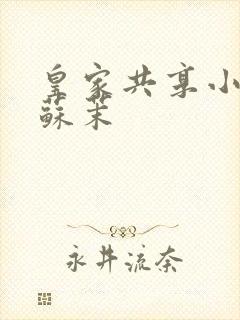 皇家共享小
蘇茉
永井流奈